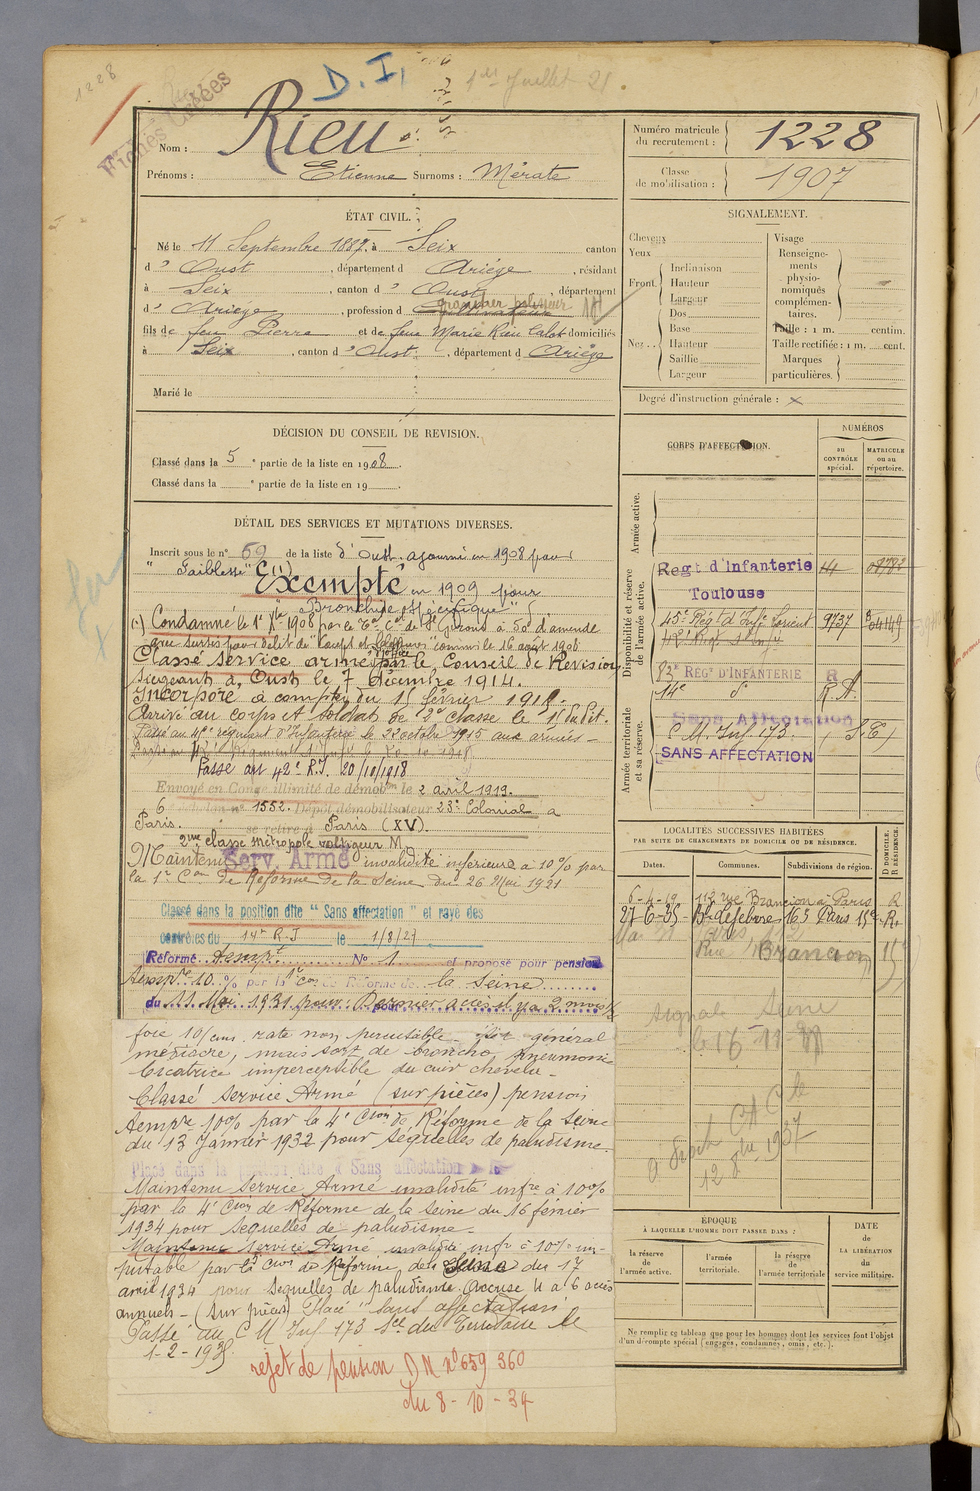 1228
Fichés Cotées
D. I.
1er Juillet 21.
Nom : Rieu
Prénoms : Etienne Surnoms : Mérate
Numéro matricule du recrutement : 1228
Classe de mobilisation : 1907
ÉTAT CIVIL.
Né le 11 Septembre 1887, à Seix canton
d' Oust, département d Ariége, résidant
à Seix, canton d' Oust, département
d' Ariége, profession d
fils de feu Pierre et de feue Marie Rieu Calot domiciliés
à Seix, canton d' Oust, département d Ariége
Marié le
DÉCISION DU CONSEIL DE REVISION.
Classé dans la 5e partie de la liste en 1908.
Classé dans la e partie de la liste en 19 .
DÉTAIL DES SERVICES ET MUTATIONS DIVERSES.
Inscrit sous le n° 69 de la liste d' Oust. ajourné en 1908 pour
"Faiblesse" (1)
Exempté en 1909 pour
Bronchite spécifique".
(1) Condamné le 1er Xbre 1908 par le St Girons à 50f d'amende
avec sursis pour délit de Coups et commis le 16 août 1908
Classé service armé d'office par le Conseil de Révision
siégeant à Oust le 7 Décembre 1914.
Incorporé à compter du 15 février 1915.
Arrivé au corps et soldat de 2e classe le 15 du dit.
Passé au 45e régiment d'Infanterie le 22 octobre 1915 aux armées
Passé au 42e Régiment d'Infie le 20-10-1918
Passé au 42e R.I. 20/10/1918
Envoyé en Congé illimité de démobon le 2 avril 1919.
6e échelon n° 1552. Dépôt démobilisateur 23e Colonial à
Paris. se retire à Paris (XV).
2me classe métropole voltigeur M
Maintenu Serv. Armé invalidité inférieure à 10% par
la 1re Con de Réforme de la Seine du 26 Mai 1921
Classé dans la position dite "Sans affectation" et rayé des
contrôles du 14e R.I le 1/8/27
Réformé tempre N° 1 et proposé pour pension
tempre 10 % par la 1re con de Réforme de la Seine
du 11 Mai 1931 pour : Dernier accès il y a 2 mois 1/2
foie 10/cms. rate non percutable. état général
médiocre, mais sort de broncho pneumonie
Cicatrice imperceptible du cuir chevelu.
Classé Service Armé (sur pièces) pension
tempre 10% par la 4e Cson de Réforme de la Seine
du 13 Janvier 1932 pour séquelles de paludisme.
Placé dans la position dite "Sans affectation" le
Maintenu Service Armé invalidité infre à 10%
par la 4e Cson de Réforme de la Seine du 16 février
1934 pour séquelles de paludisme
Maintenu Service Armé invalidité infre à 10% im-
putable par la 5e Cson de Réforme de la Seine du 17
avril 1934 pour séquelles de paludisme. Accuse 4 à 6 accès
annuels - (sur pièces) Placé "sans affectation"
Passé au C M Inf 173 Sce du Territoire le
1-2-1935
rejet de pension D M n° 659 360
du 8-10-34
SIGNALEMENT.
Cheveux
Yeux
Front. Inclinaison
Hauteur
Largeur
Nez. Dos
Base
Hauteur
Saillie
Largeur
Visage
Renseignements physionomiques complémentaires.
Taille : 1 m. centim.
Taille rectifiée : 1 m. cent.
Marques particulières.
Degré d'instruction générale : x
CORPS D'AFFECTATION.
NUMÉROS
au CONTRÔLE spécial.
MATRICULE ou au répertoire.
Armée active.
Disponibilité et réserve de l'armée active.
Regt d'Infanterie
Toulouse
45e Régt d'Infie Lorient 9737 04149
42e Régt d'Infie
83e REGt D'INFANTERIE R
14e d° R.A.
Armée territoriale et sa réserve.
Sans Affectation
C M. Inf 173. (S.T)
SANS AFFECTATION
LOCALITÉS SUCCESSIVES HABITÉES
PAR SUITE DE CHANGEMENTS DE DOMICILE OU DE RÉSIDENCE.
Dates. Communes. Subdivisions de région. D DOMICILE. R RÉSIDENCE.
6-4-19 112 rue Brancion à Paris R
27-6-35 Bd Lefebvre, 163 Paris 15e R
Rue Brancion 15e
Signalé Seine
le 16-11-
12 1937
ÉPOQUE
À LAQUELLE L'HOMME DOIT PASSER DANS :
la réserve de l'armée active.
l'armée territoriale.
la réserve de l'armée territoriale
DATE DE LA LIBÉRATION du service militaire.
Ne remplir ce tableau que pour les hommes dont les services font l'objet
d'un décompte spécial (engagés, condamnés, omis, etc.).